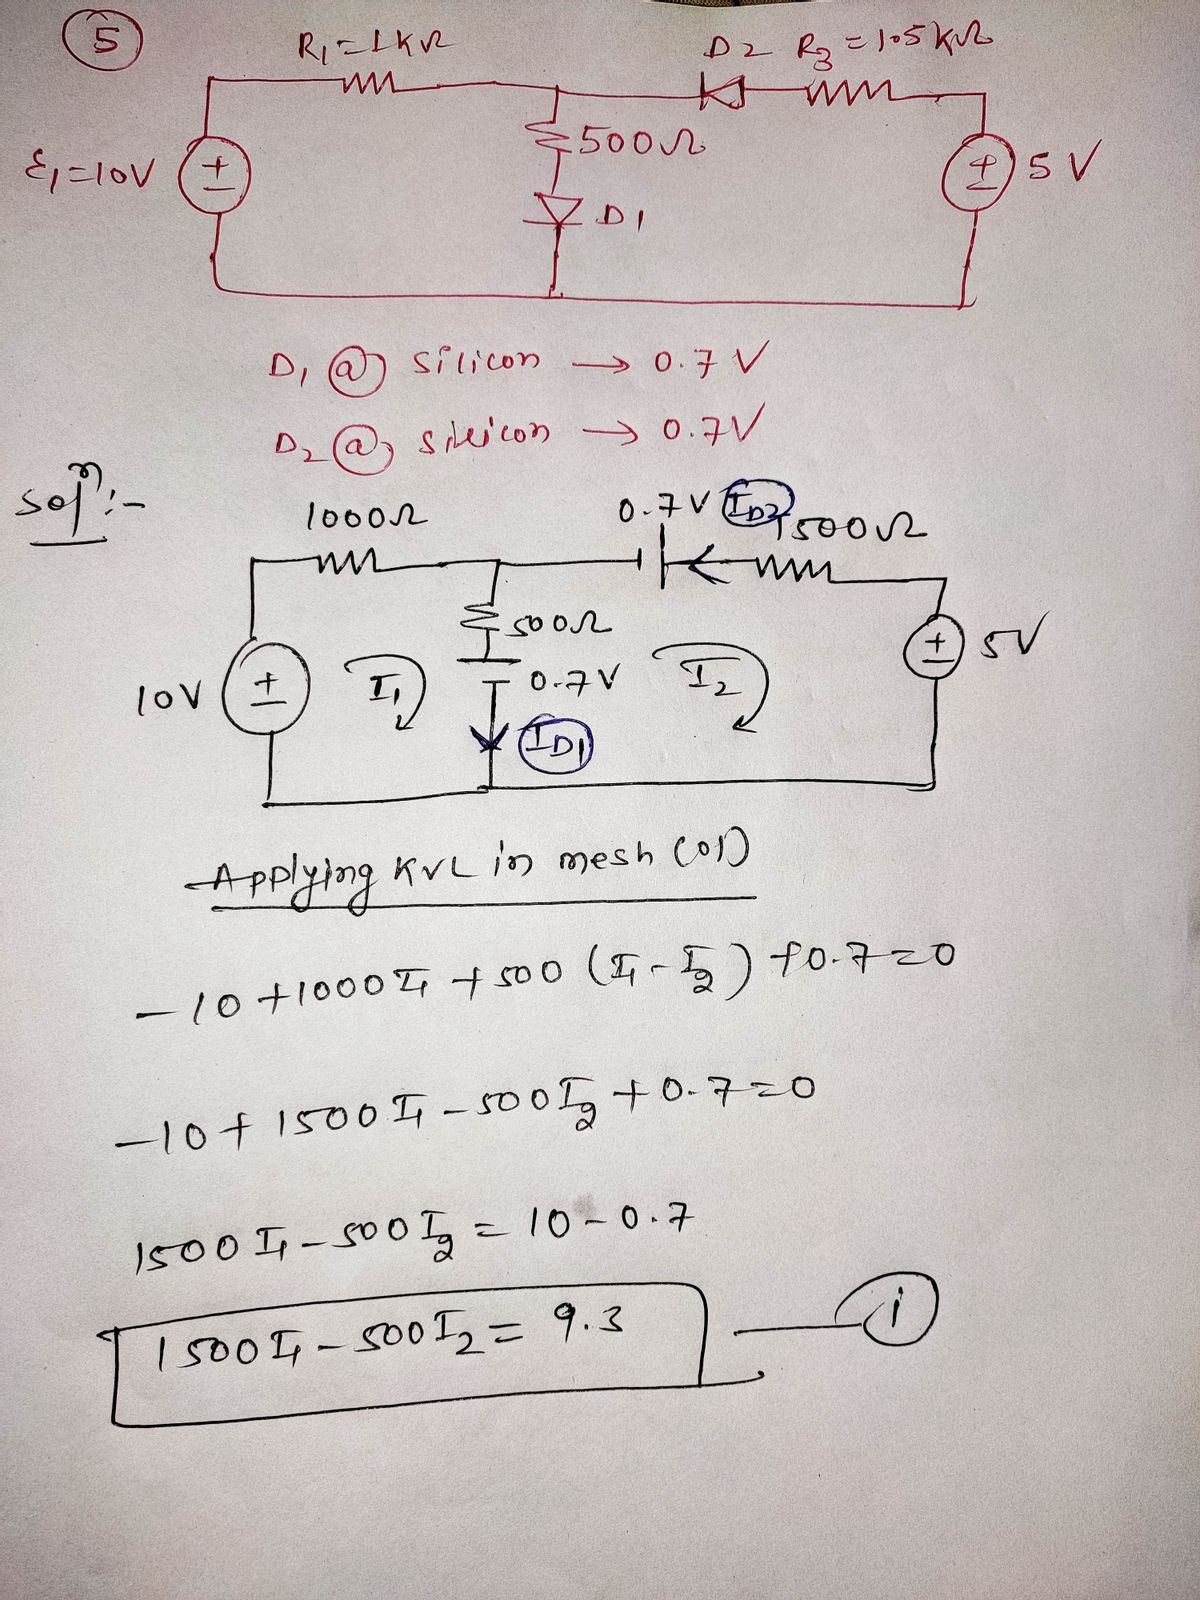 5
R₁=1KΩ
D2 R₃=1.5kΩ
ε₁=10V
+
500Ω
+
5V
D1
D₁ @ silicon → 0.7V
D₂ @ silicon → 0.7V
Solⁿ:-
1000Ω
0.7V I_D2
1500Ω
500Ω
10V
+
I₁
0.7V
I₂
+
5V
I_D1
Applying KVL in mesh (01)
-10+1000I₁+500(I₁-I₂)+0.7=0
-10+1500I₁-500I₂+0.7=0
1500I₁-500I₂=10-0.7
1500I₁-500I₂=9.3 — i